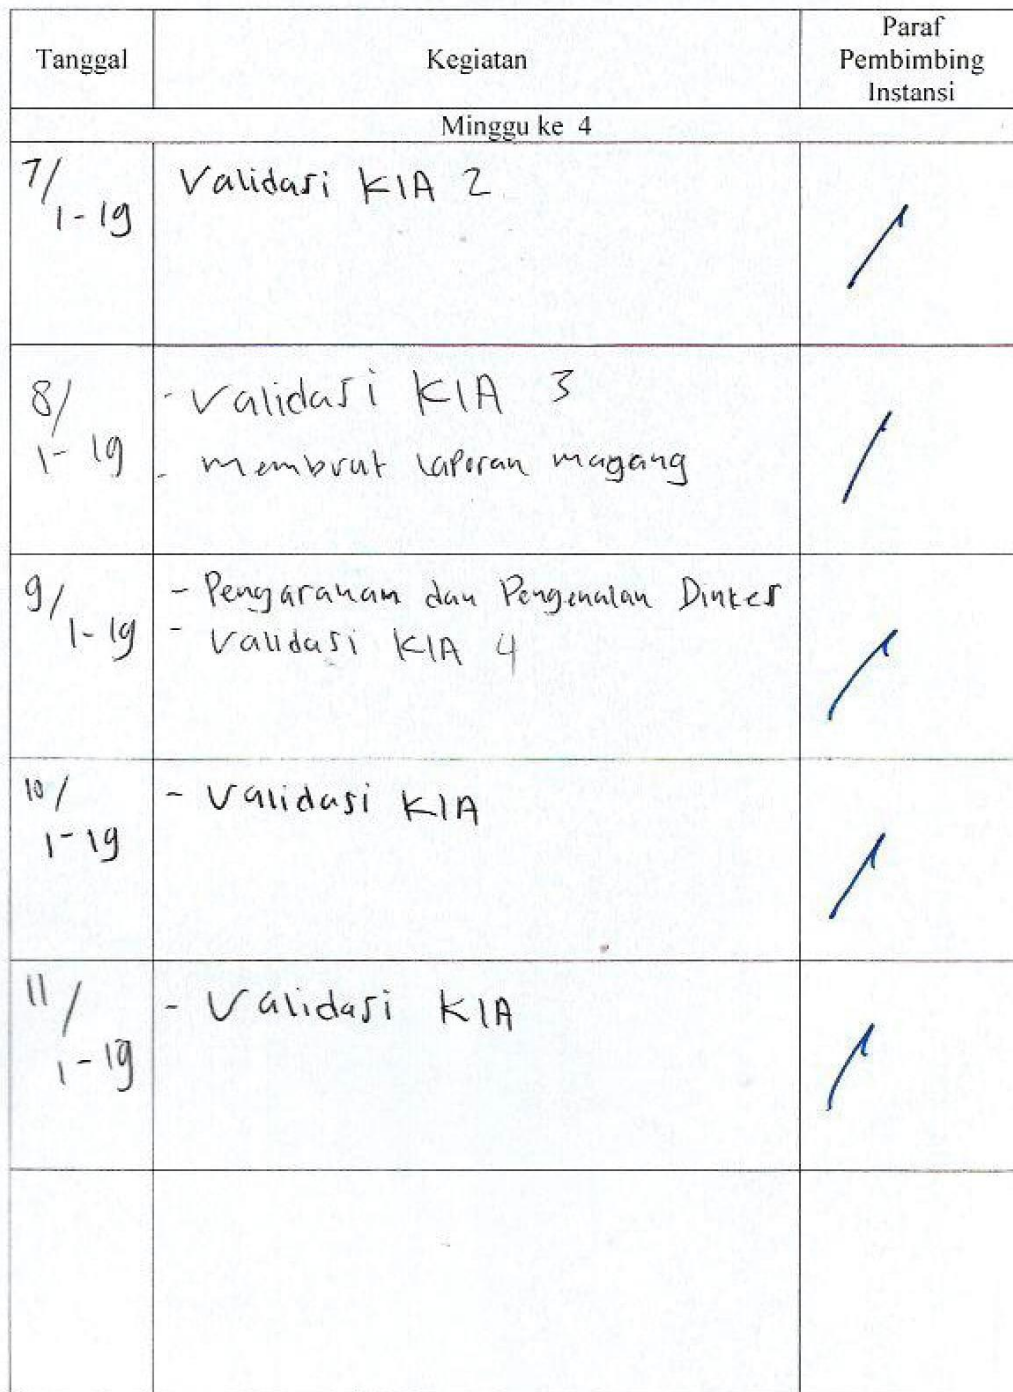 Tanggal
Kegiatan
Paraf
Pembimbing
Instansi
Minggu ke 4
7/
1-19
Validasi KIA 2
8/
1-19
- Validasi KIA 3
- membuat laporan magang
9/
1-19
- Pengarahan dan Pengenalan Dinkes
- Validasi KIA 4
10/
1-19
- Validasi KIA
11/
1-19
- Validasi KIA